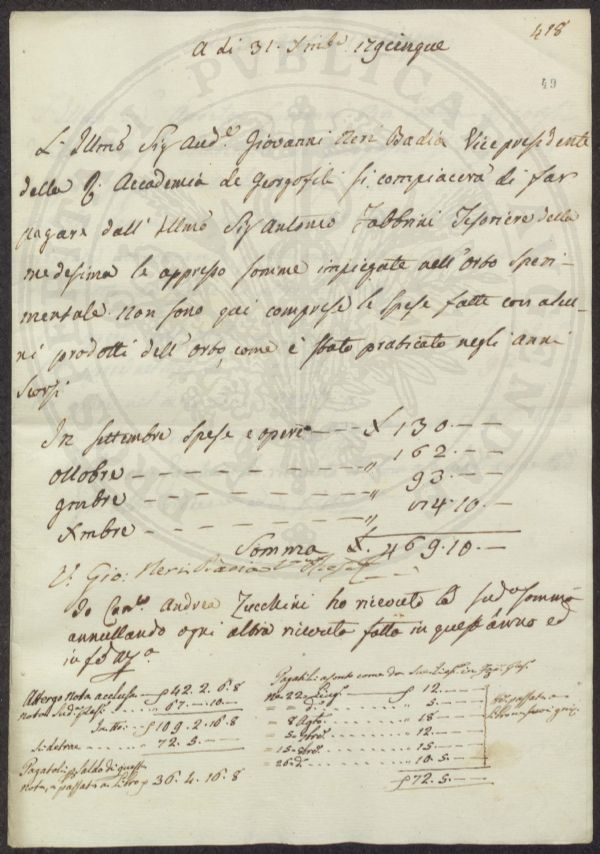 418
A di 31. Xmbre 179cinque
49
L'Illmo Sig Aud.e Giovanni Neri Badia Vicepresidente
della R. Accademia de Georgofili si compiacerà di far
pagare dall'Illmo Sig Antonio Fabbrini Tesoriere della
medesima le appresso somme impiegate nell'Orto Speri-
mentale. Non sono qui comprese le spese fatte con alcu-
ni prodotti dell'Orto, come è stato praticato negli anni
scorsi
In settembre spese e opere — £ 130.—
Ottobre — — — — " 162.—
9mbre — — — — " 93.—
Xmbre — — — — " 84.10.—
Somma £. 469.10.—
V. Gio: Neri Badia
Io Can.co Andrea Zucchini ho ricevuto la sud.a somma
annullando ogni altra ricevuta fatta in quest'anno ed
in fe
Albergo Nota acclusa — £ 42. 2. 6. 8
67. 10. —
£ 109. 2. 16. 8
Si detrae 72. 5. —
Pagatoli p saldo di questa
nota, e passata a Libro £ 36. 4. 16. 8
Pagatili a conto come da
No 22 £ 12. —
5. —
8 Agto 18 —
5 12. —
15 15. —
26 d.o 10. 5. —
£ 72. 5. —